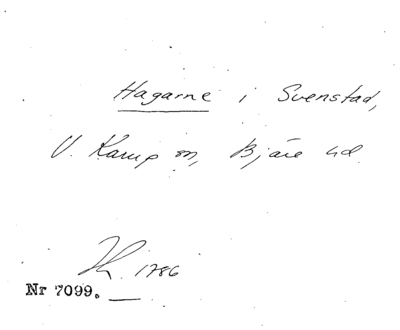 Hagarne i Svenstad,
V. Karup sn, Bjäre hd
1786
Nr 7099.